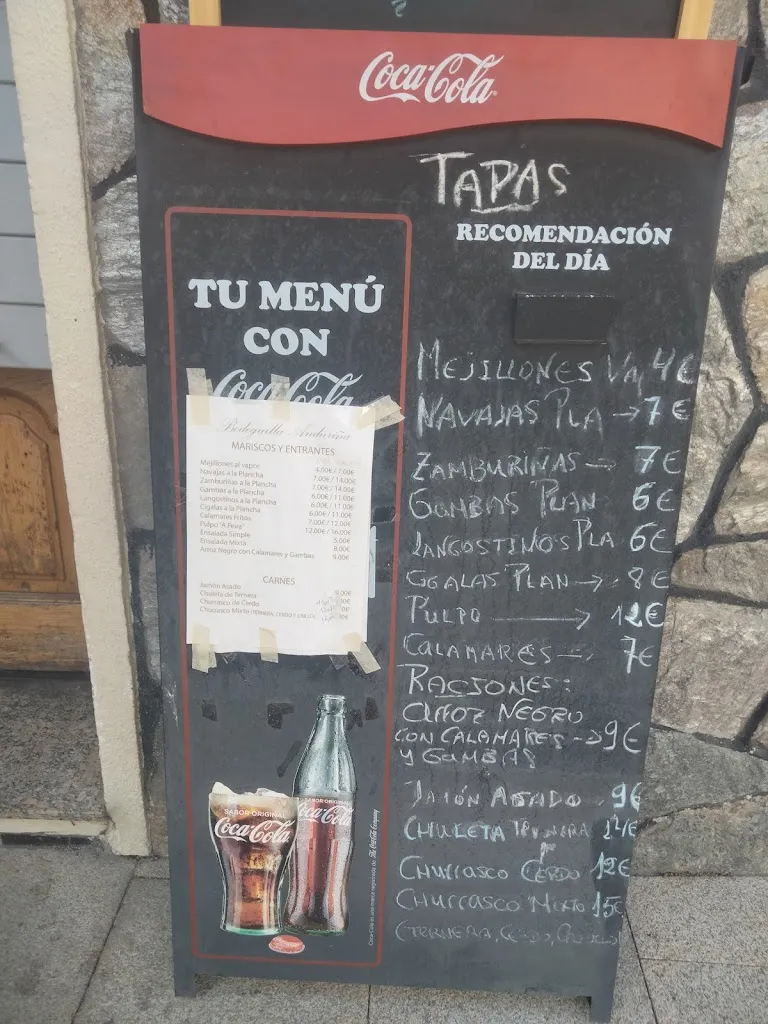 Coca-Cola
TAPAS
RECOMENDACIÓN
DEL DÍA
TU MENÚ
CON
Coca-Cola
Bodeguilla
MARISCOS Y ENTRANTES
Mejillones al vapor 4.00€ / 7.00€
Navajas a la Plancha 7.00€ / 14.00€
Zamburiñas a la Plancha 7.00€ / 14.00€
Gambas a la Plancha 6.00€ / 11.00€
Langostinos a la Plancha 6.00€ / 11.00€
Cigalas a la Plancha 6.00€ / 11.00€
Calamares Fritas 7.00€ / 12.00€
Pulpo "A Feira" 12.00€ / 16.00€
Ensalada Simple 5.00€
Ensalada Mixta 8.00€
Arroz Negro con Calamares y Gambas 9.00€
CARNES
Jamón Asado 9.00€
Chuleta de Ternera
Churrasco de Cerdo
Churrasco Mixto
MEJILLONES VA, 4€
NAVAJAS PLA → 7€
ZAMBURIÑAS → 7€
GAMBAS PLAN 6€
LANGOSTINOS PLA 6€
CGALAS PLAN → 8€
PULPO → 12€
CALAMARES → 7€
RACIONES:
ARROZ NEGRO
CON CALAMARES → 9€
Y GAMBAS
JAMÓN ASADO 9€
CHULETA TERNERA
CHURRASCO CERDO 12€
CHURRASCO MIXTO 15€
(TERNERA, CERDO,
SABOR ORIGINAL
Coca-Cola
SABOR ORIGINAL
Coca-Cola
Coca-Cola es una marca registrada de The Coca-Cola Company